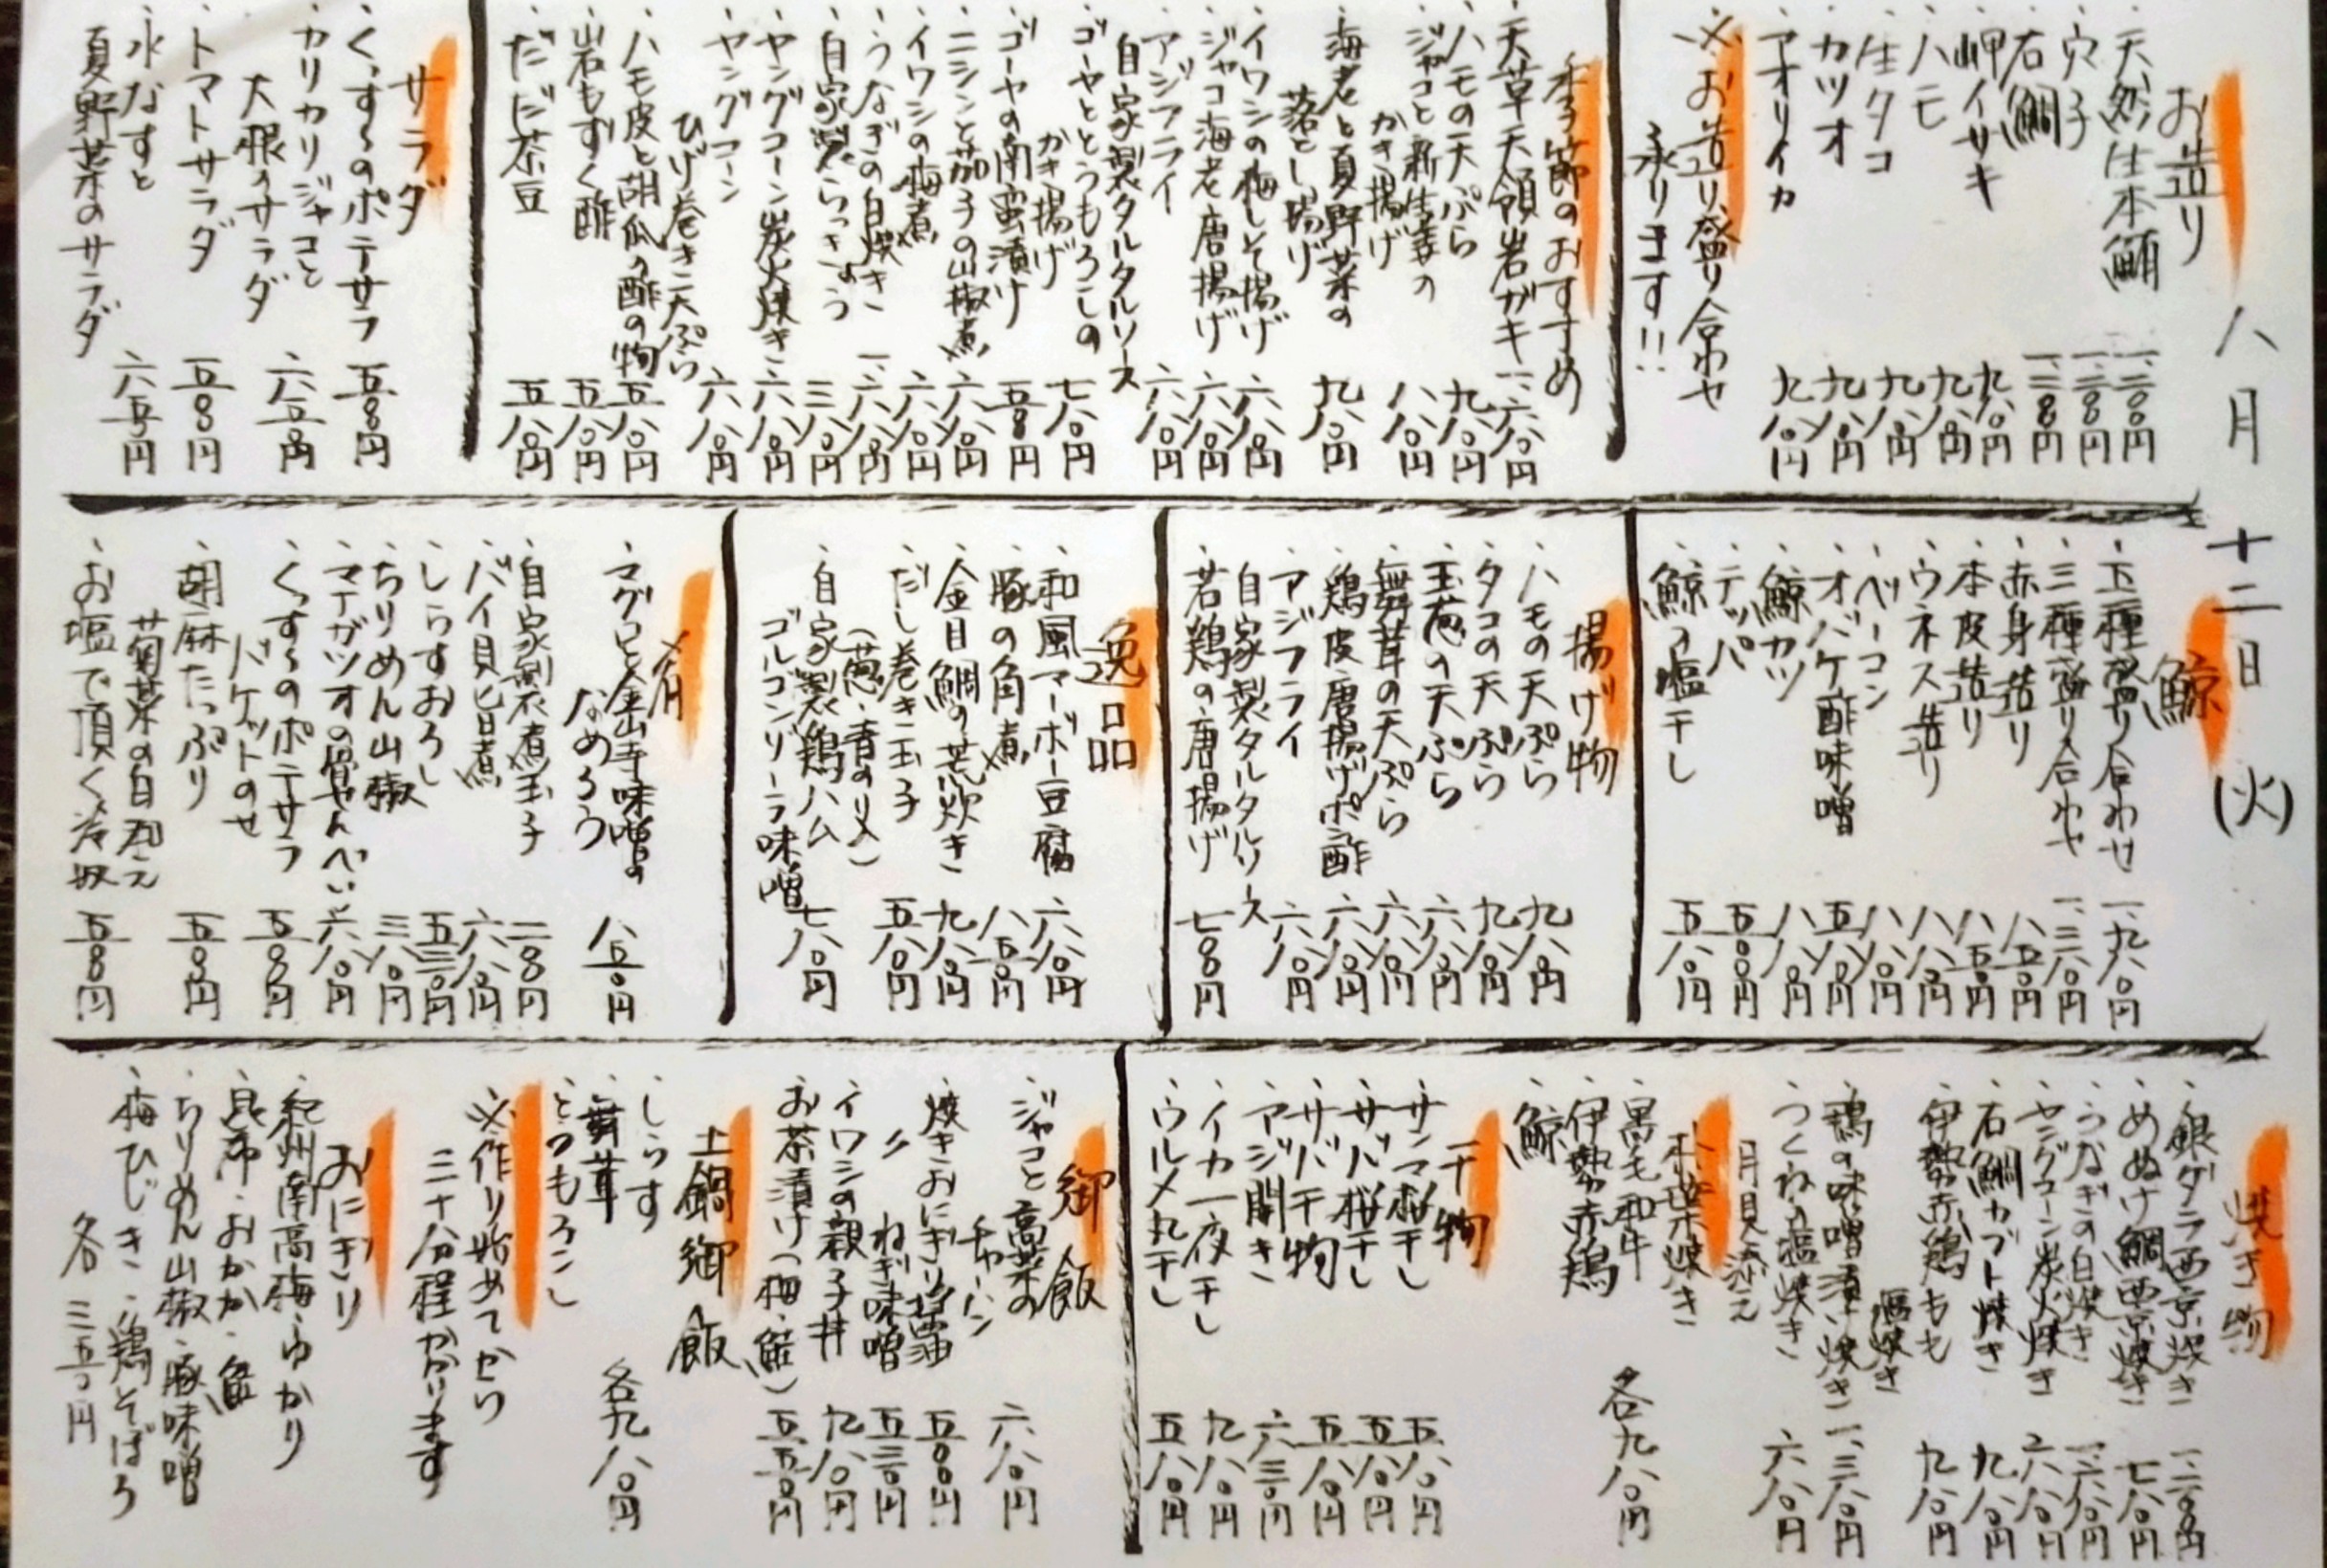 八月十二日(火)
お造り
・天然生本鮪 一、二〇〇円
・穴子 一、二〇〇円
・石鯛 一、二〇〇円
・岬イサキ 九八〇円
・ハモ 九八〇円
・生タコ 九八〇円
・カツオ 九八〇円
・アオリイカ 九八〇円
※お造り盛り合わせ
承ります!!
季節のおすすめ
・天草天領岩ガキ 一、六八〇円
・ハモの天ぷら 九八〇円
・ジャコと新生姜の
かき揚げ 八八〇円
・海老と夏野菜の
落とし揚げ 九八〇円
・イワシの梅しそ揚げ 六八〇円
・ジャコ海老唐揚げ 六八〇円
・アジフライ 六八〇円
自家製タルタルソース
・ゴーヤととうもろこしの
かき揚げ 七八〇円
・ゴーヤの南蛮漬け 五八〇円
・ニシンと茄子の山椒煮 六八〇円
・イワシの梅煮 六八〇円
・うなぎの白焼き 一、六八〇円
・自家製らっきょう 三八〇円
・ヤングコーン炭火焼き 六八〇円
・ヤングコーン
ひげ巻き天ぷら 六八〇円
・ハモ皮と胡瓜の酢の物 五八〇円
・岩もずく酢 五八〇円
・だだ茶豆 五八〇円
サラダ
・くっすーのポテサラ 五〇〇円
・カリカリジャコと
大根のサラダ 六五〇円
・トマトサラダ 五〇〇円
・水なすと
夏野菜のサラダ 六五〇円
鯨
・五種盛り合わせ 一、九八〇円
・三種盛り合わせ 一、三八〇円
・赤身造り 八五〇円
・本皮造り 八五〇円
・ウネス造り 八八〇円
・ベーコン 八八〇円
・オバケ酢味噌 五八〇円
・鯨カツ 八八〇円
・テッパ 五〇〇円
・鯨の塩干し 五八〇円
揚げ物
・ハモの天ぷら 九八〇円
・タコの天ぷら 九八〇円
・玉葱の天ぷら 六八〇円
・舞茸の天ぷら 六八〇円
・鶏皮唐揚げポン酢 六八〇円
・アジフライ 六八〇円
自家製タルタルソース
・若鶏の唐揚げ 七〇〇円
逸品
・和風マーボー豆腐 六八〇円
・豚の角煮 八五〇円
・金目鯛の荒炊き 九八〇円
・だし巻き玉子 五八〇円
(葱・青のり入)
・自家製鶏ハム
ゴルゴンゾーラ味噌 七八〇円
肴
・マグロと金山寺味噌の
なめろう 八五〇円
・自家製煮玉子 二〇〇円
・バイ貝旨煮 六八〇円
・しらすおろし 五三〇円
・ちりめん山椒 三八〇円
・マナガツオの骨せんべい 六八〇円
・くっすーのポテサラ
バケットのせ 五〇〇円
・胡麻たっぷり
菊菜の白和え 五〇〇円
・お塩で頂く冷奴 五〇〇円
焼き物
・銀ダラ西京焼き 一、二〇〇円
・めぬけ鯛西京焼き 七八〇円
・うなぎの白焼き 一、六八〇円
・ヤングコーン炭火焼き 六八〇円
・石鯛カブト焼き 九八〇円
・伊勢赤鶏もも
塩焼き 九八〇円
・鶏の味噌漬け焼き 一、三八〇円
・つくねの塩焼き 六八〇円
月見添え
朴葉焼き
・黒毛和牛
・伊勢赤鶏
・鯨
各九八〇円
干物
・サンマ桜干し 五八〇円
・サバ桜干し 五八〇円
・サバ干物 五八〇円
・アジ開き 六三〇円
・イカ一夜干し 九八〇円
・ウルメ丸干し 五八〇円
御飯
・ジャコと高菜の
チャーハン 六八〇円
・焼きおにぎり醤油 五〇〇円
・〃 ねぎ味噌 五三〇円
・イワシの親子丼 九八〇円
・お茶漬け(梅・鮭) 五五〇円
土鍋御飯
・しらす
・舞茸
・とうもろこし
各九八〇円
※作り始めてから
三十分程かかります
おにぎり
・紀州南高梅・ゆかり
・昆布・おかか・鮭
・ちりめん山椒・豚味噌
・梅ひじき・鶏そぼろ
各三五〇円